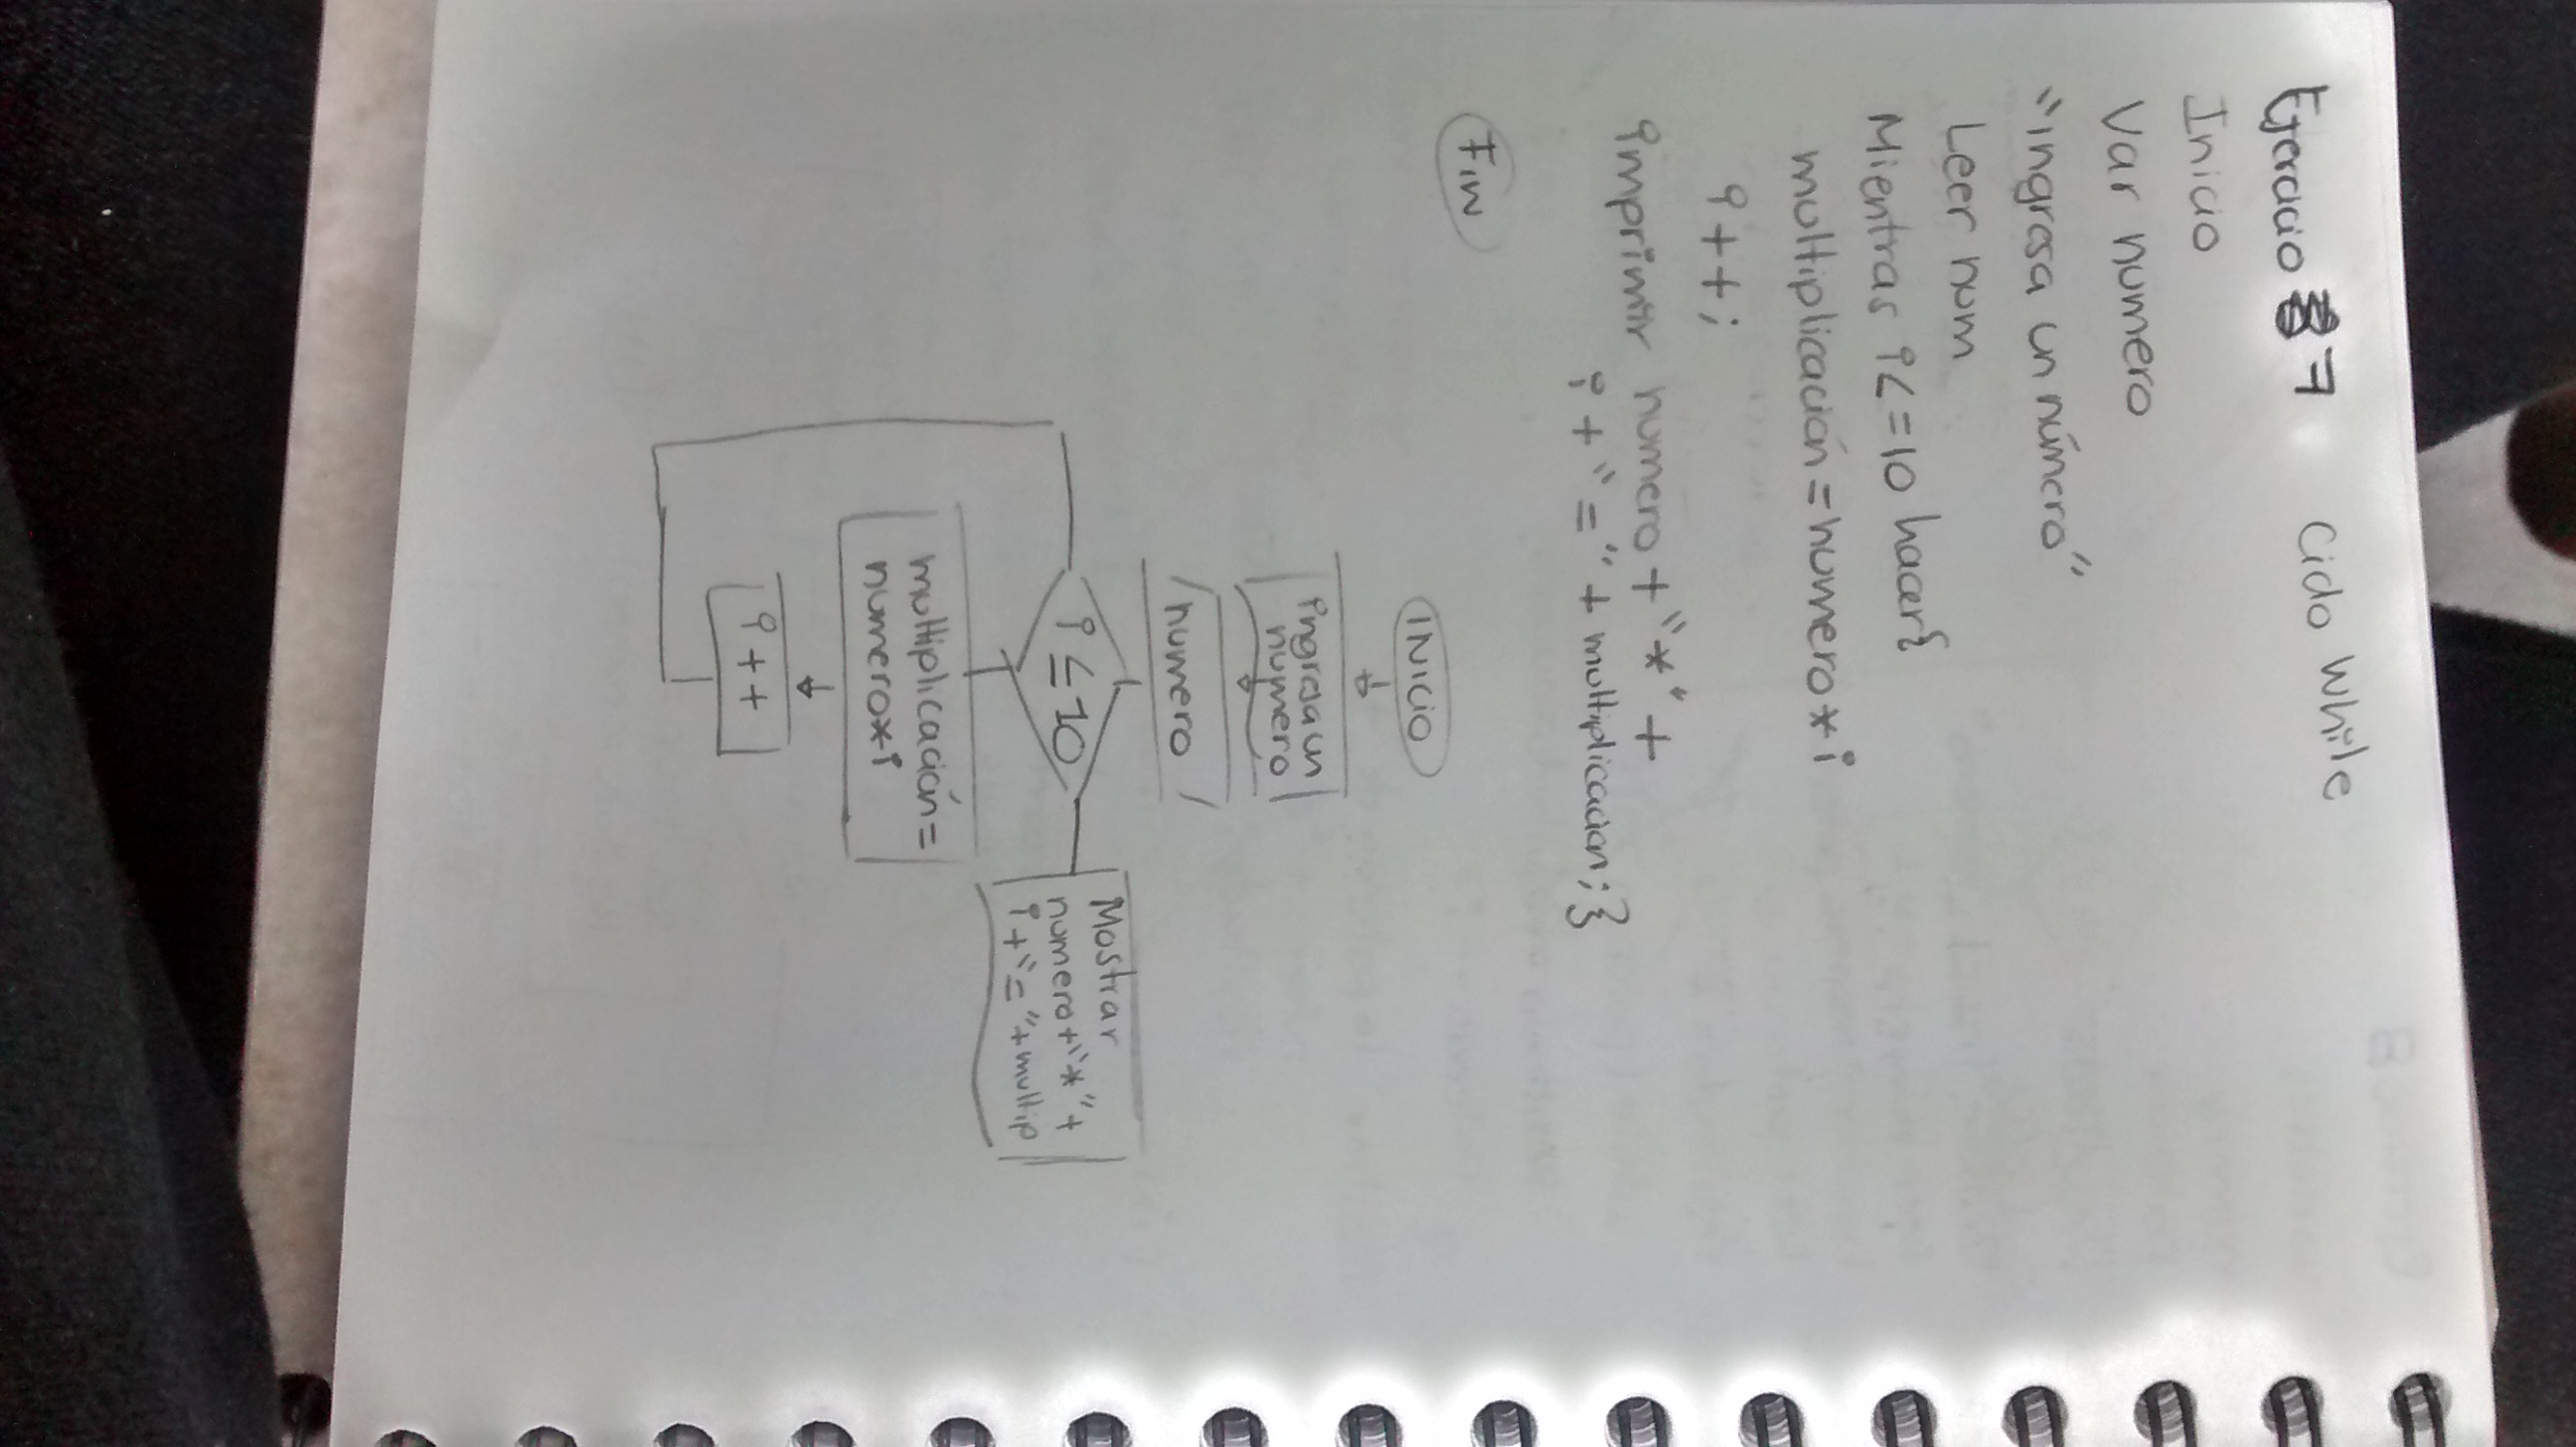 Ejercicio 7 Ciclo While
Inicio
Var numero
"ingresa un número"
Leer num
Mientras i<=10 hacer{
multiplicación=numero*i
i++;
imprimir numero+"*"+
i+"="+multiplicacion;}
Fin
INICIO
ingresa un
numero
numero
i≤10
Mostrar
numero+"*"+
i+"="+multip
multiplicación=
numero*i
i++